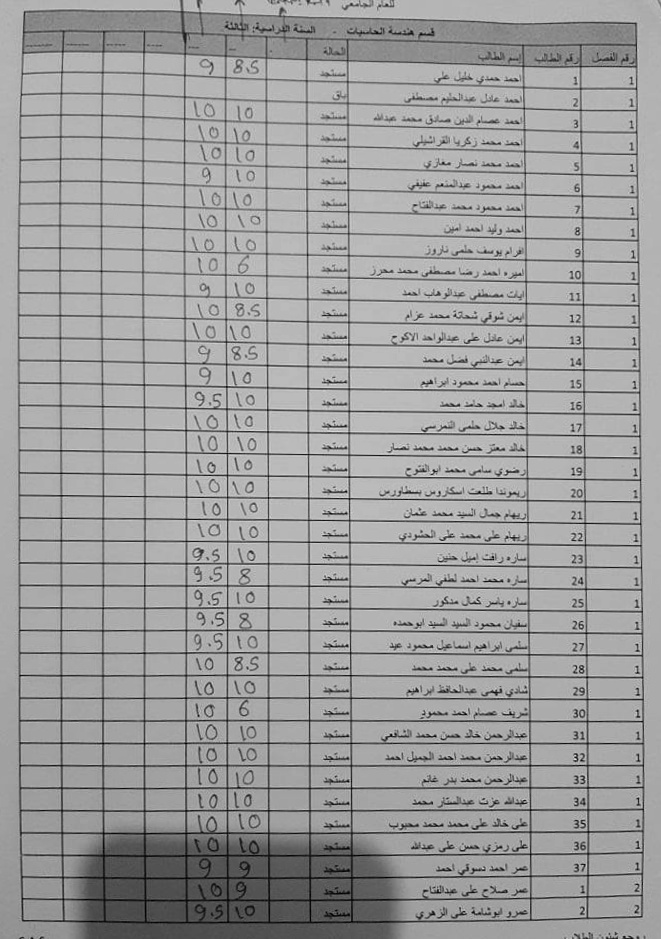 للعام الجامعي
قسم هندسة الحاسبات - السنة الدراسية: الثالثة
رقم الفصل رقم الطالب إسم الطالب الحالة
1 1 احمد حمدي خليل علي مستجد 8.5 9
1 2 احمد عادل عبدالحليم مصطفى باق
1 3 احمد عصام الدين صادق محمد عبدالله مستجد 10 10
1 4 احمد محمد زكريا القراشيلي مستجد 10 10
1 5 احمد محمد نصار مغازي مستجد 10 10
1 6 احمد محمود عبدالمنعم عفيفي مستجد 10 9
1 7 احمد محمود محمد عبدالفتاح مستجد 10 10
1 8 احمد وليد احمد امين مستجد 10 10
1 9 افرام يوسف حلمى ناروز مستجد 10 10
1 10 اميره احمد رضا مصطفى محمد محرز مستجد 6 10
1 11 ايات مصطفى عبدالوهاب احمد مستجد 10 9
1 12 ايمن شوقي شحاتة محمد عزام مستجد 8.5 10
1 13 ايمن عادل على عبدالواحد الاكوح مستجد 10 10
1 14 ايمن عبدالنبي فضل محمد مستجد 8.5 9
1 15 حسام احمد محمود ابراهيم مستجد 10 9
1 16 خالد امجد حامد محمد مستجد 10 9.5
1 17 خالد جلال حلمى النمرسي مستجد 10 10
1 18 خالد معتز حسن محمد محمد نصار مستجد 10 10
1 19 رضوي سامى محمد ابوالفتوح مستجد 10 10
1 20 ريموندا طلعت اسكاروس بسطاورس مستجد 10 10
1 21 ريهام جمال السيد محمد عثمان مستجد 10 10
1 22 ريهام على محمد على الحشودي مستجد 10 10
1 23 ساره رافت إميل حنين مستجد 10 9.5
1 24 ساره محمد احمد لطفي المرسي مستجد 8 9.5
1 25 ساره ياسر كمال مدكور مستجد 10 9.5
1 26 سفيان محمود السيد السيد ابوحمده مستجد 8 9.5
1 27 سلمى ابراهيم اسماعيل محمود عيد مستجد 10 9.5
1 28 سلمى محمد على محمد محمد مستجد 8.5 10
1 29 شادي فهمى عبدالحافظ ابراهيم مستجد 10 10
1 30 شريف عصام احمد محمود مستجد 6 10
1 31 عبدالرحمن خالد حسن محمد الشافعي مستجد 10 10
1 32 عبدالرحمن محمد احمد الجميل احمد مستجد 10 10
1 33 عبدالرحمن محمد بدر غانم مستجد 10 10
1 34 عبدالله عزت عبدالستار محمد مستجد 10 10
1 35 على خالد على محمد محمد محبوب مستجد 10 10
1 36 على رمزي حسن على عبدالله مستجد 10 10
1 37 عمر احمد دسوقي احمد مستجد 9 9
2 1 عمر صلاح على عبدالفتاح مستجد 9 10
2 2 عمرو ابوشامة على الزهري مستجد 10 9.5